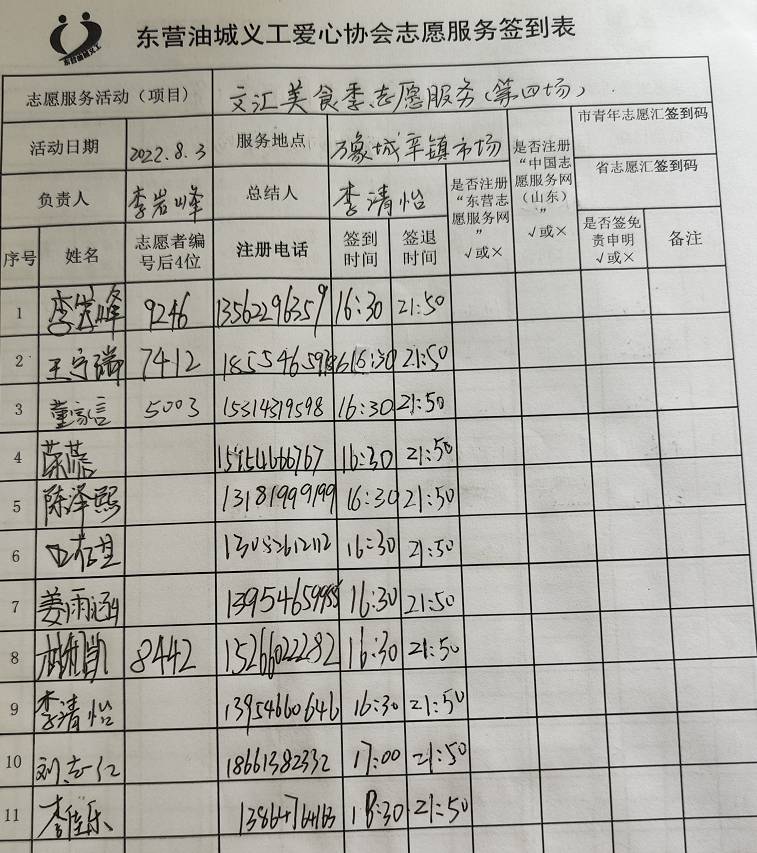 东营油城义工
东营油城义工爱心协会志愿服务签到表
志愿服务活动（项目） 文汇美食季志愿服务(第四场)
活动日期 2022.8.3 服务地点 万象城辛镇市场 是否注册“中国志愿服务网（山东）” √或× 市青年志愿汇签到码
负责人 李岩峰 总结人 李清怡 是否注册“东营志愿服务网” √或× 省志愿汇签到码
序号 姓名 志愿者编号后4位 注册电话 签到时间 签退时间 是否签免责申明 √或× 备注
1 李岩峰 9246 13562296359 16:30 21:50
2 王守瑞 7412 21:50
3 董家信 5003 15314319598 16:30 21:50
4 16:30 21:50
5 陈泽熙 13181999199 16:30 21:50
6 16:30 21:50
7 姜雨涵 16:30 21:50
8 8442 15266022282 16:30 21:50
9 李清怡 13954660646 16:30 21:50
10 刘志仁 18661382332 17:00 21:50
11 李佳乐 21:50